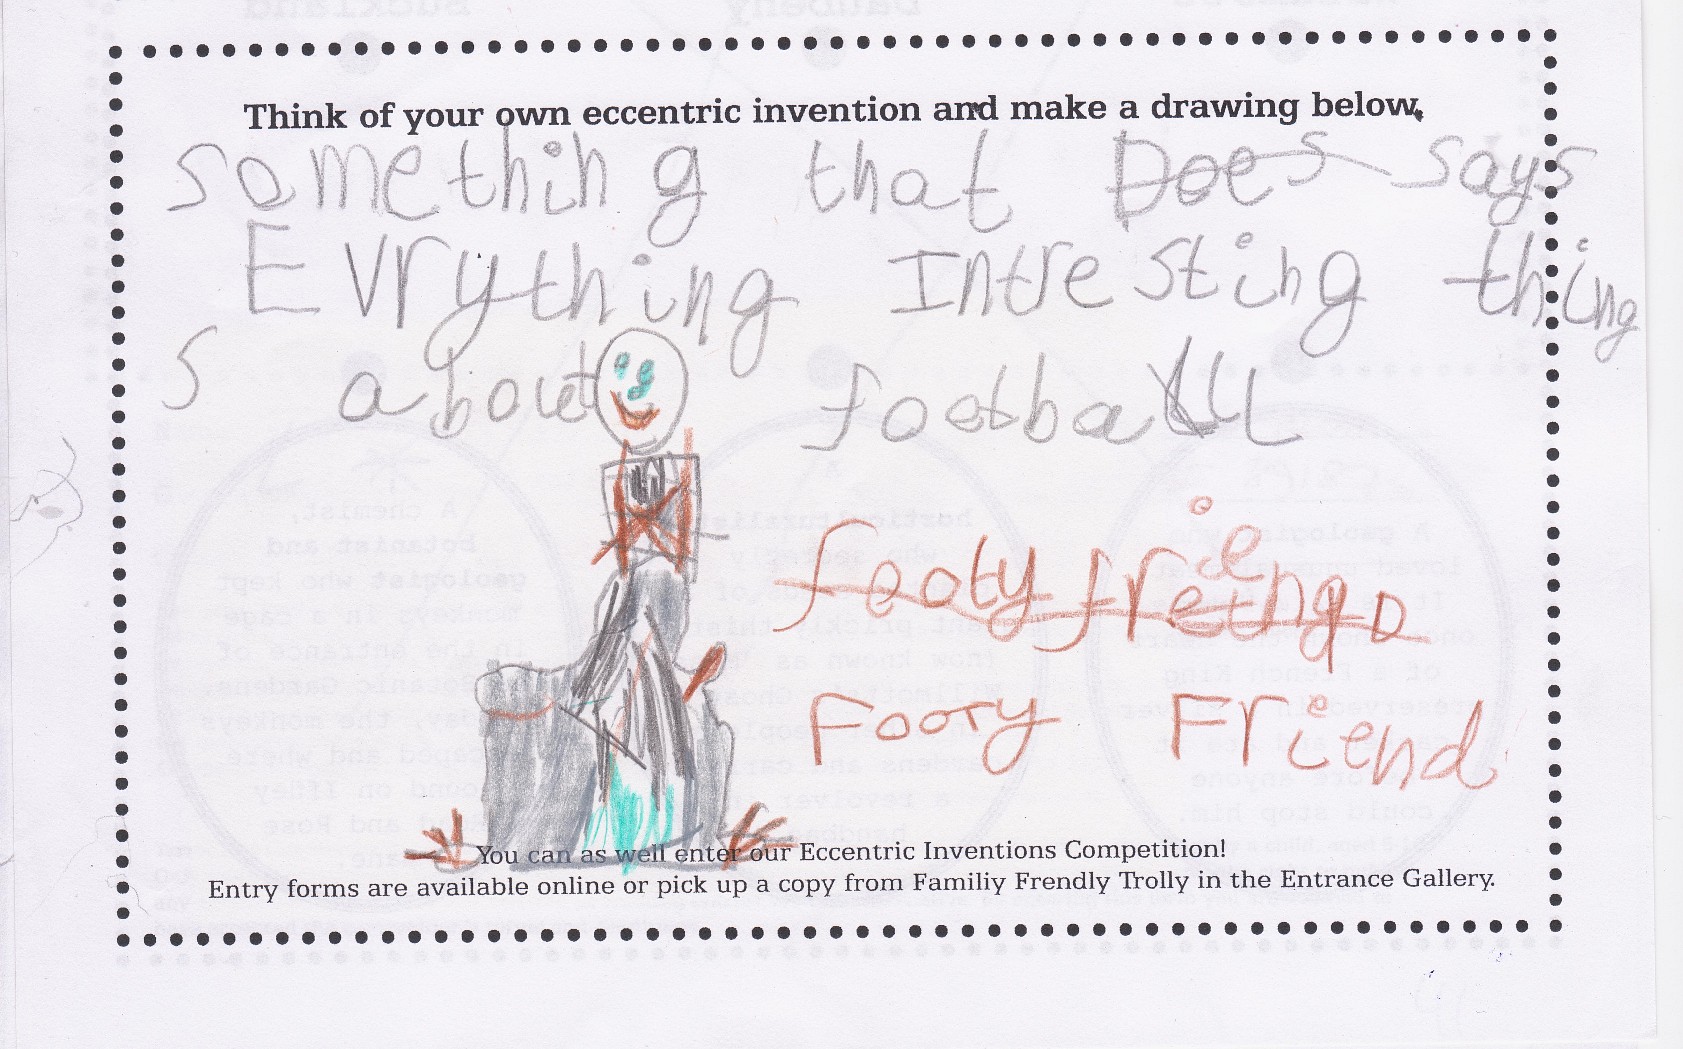 Think of your own eccentric invention and make a drawing below.
something that Does says
Evrything Intresting thing
s about football
footy freingD
Footy Friend
You can as well enter our Eccentric Inventions Competition!
Entry forms are available online or pick up a copy from Familiy Frendly Trolly in the Entrance Gallery.